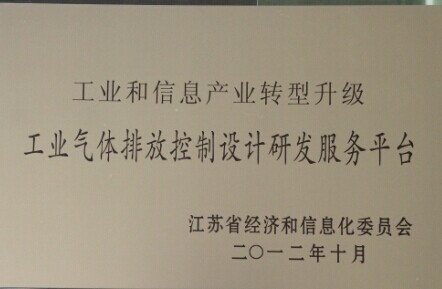 工业和信息产业转型升级
工业气体排放控制设计研发服务平台
江苏省经济和信息化委员会
二〇一二年十月